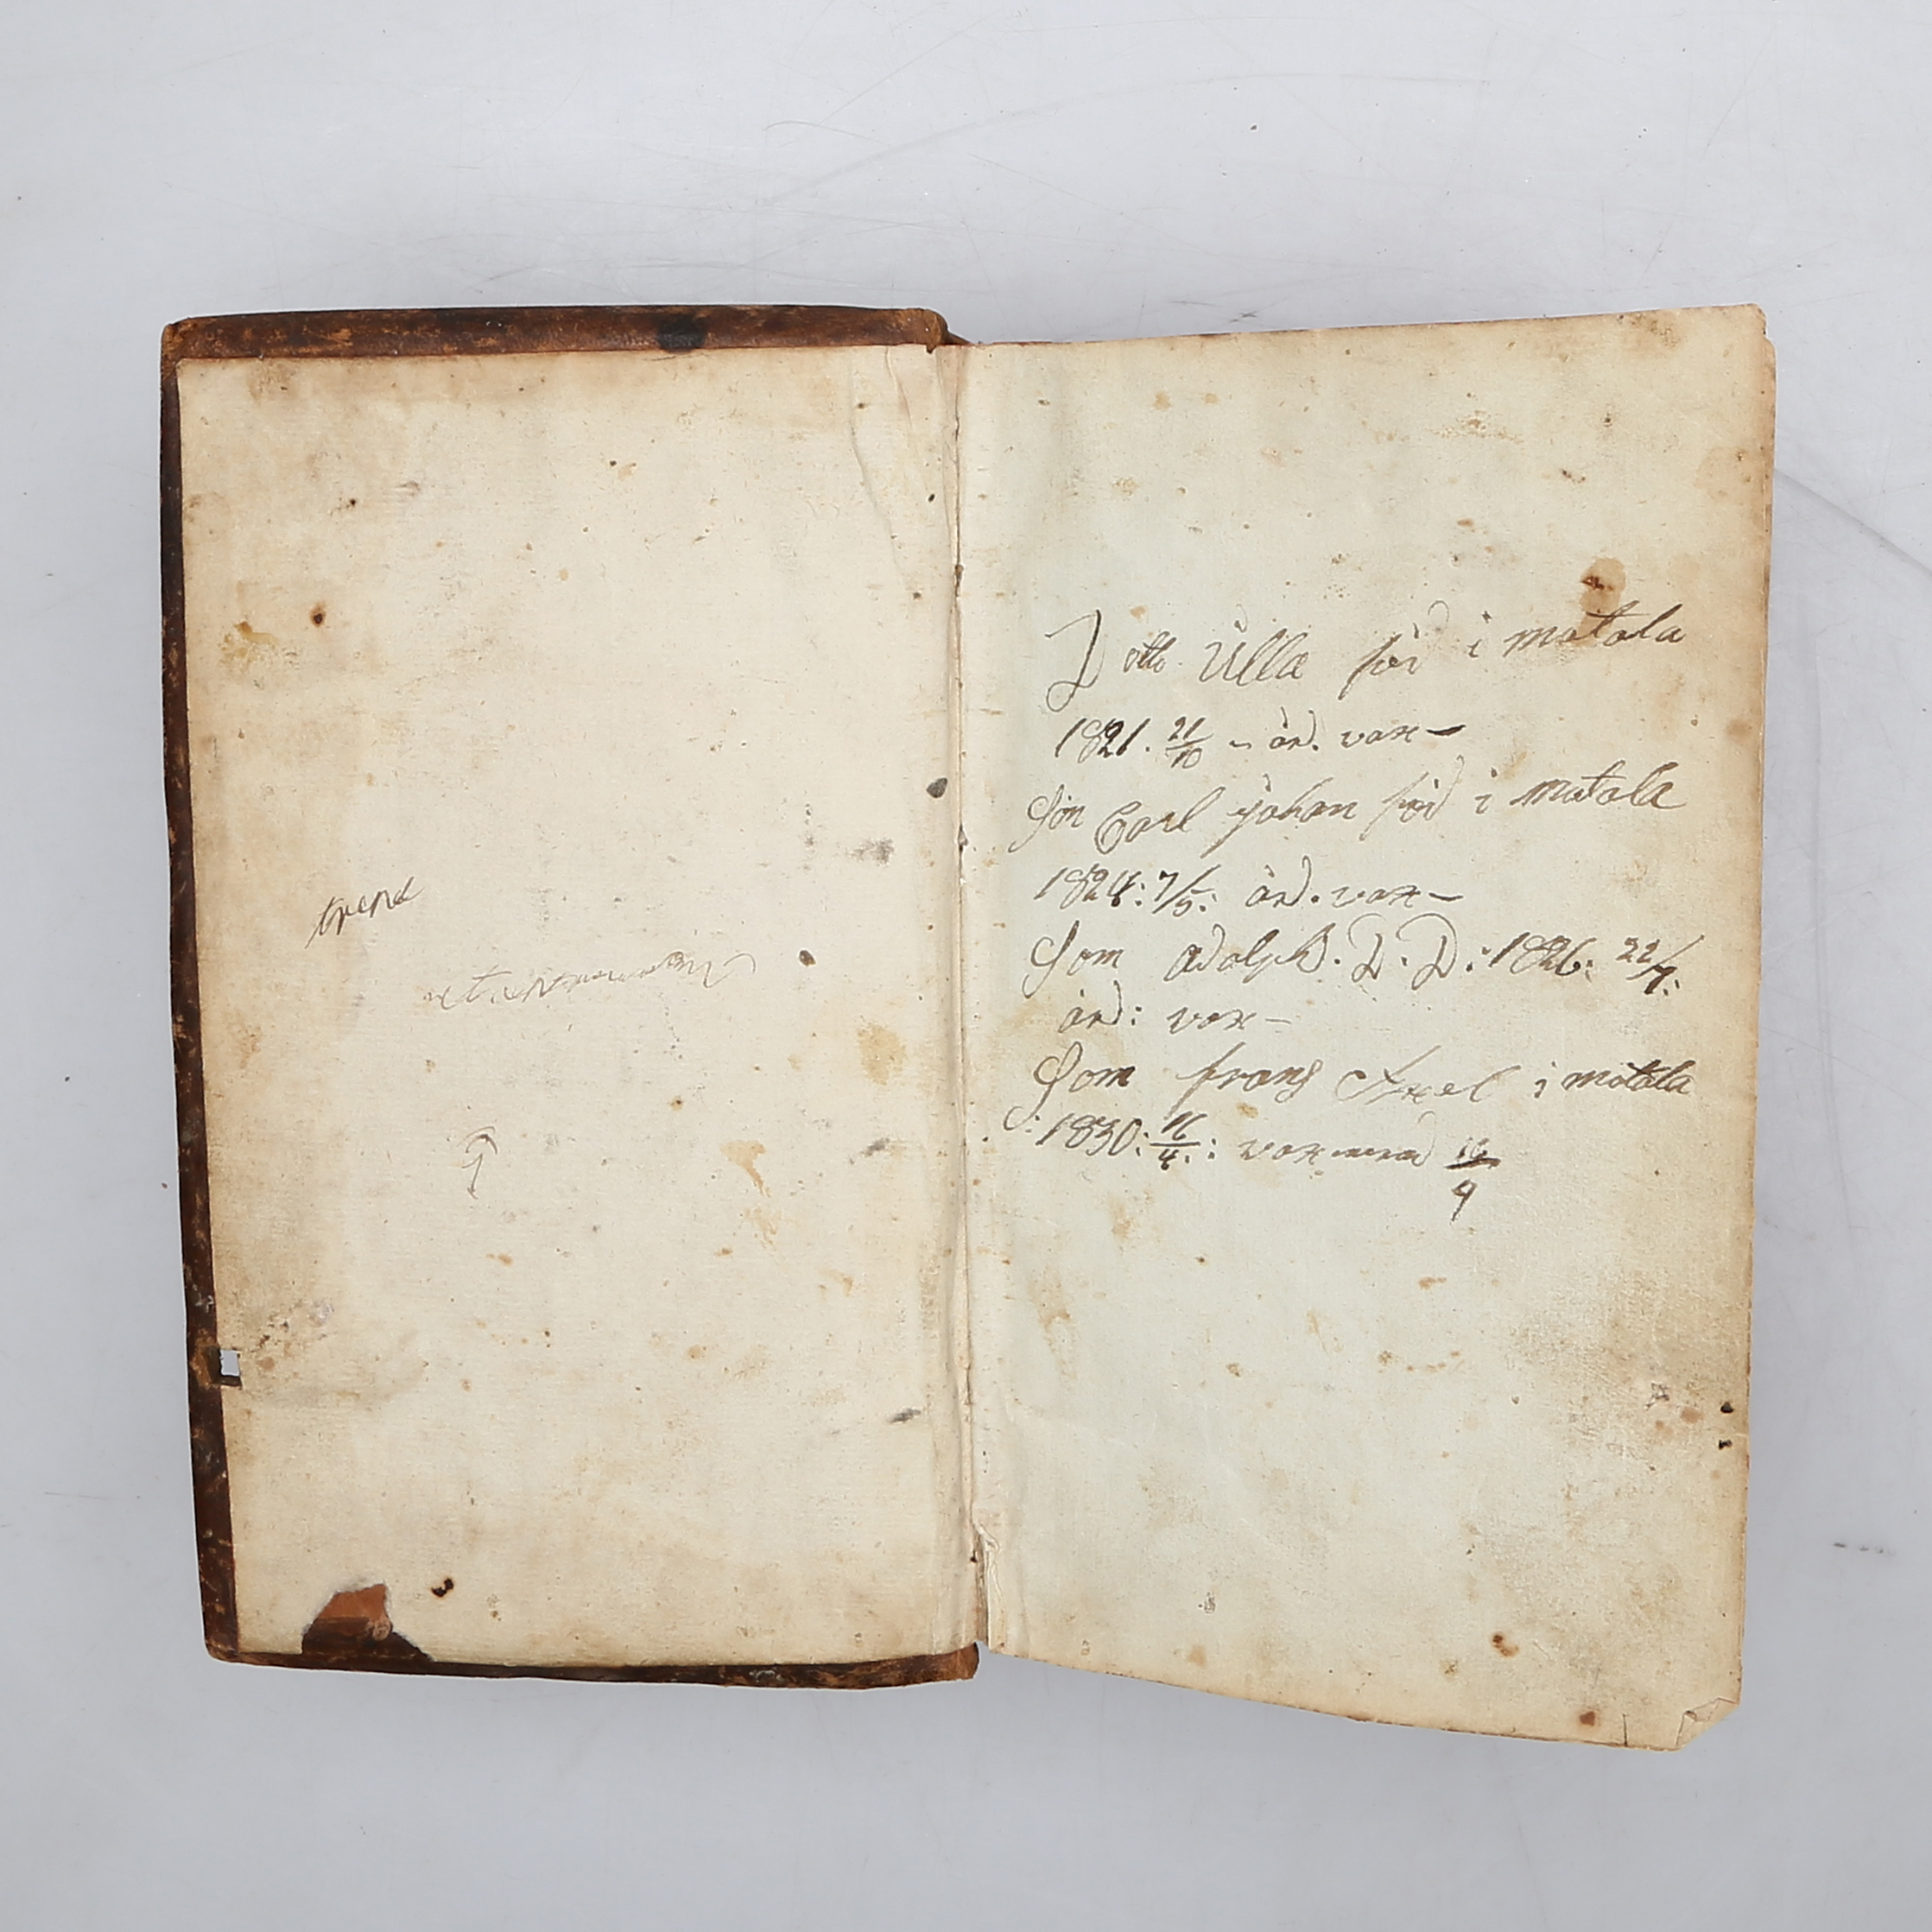 trend
Dotto. Ulla föd i motala
1821. 21/10 - år. vax-
Son Carl Johan föd i motala
1824: 7/5: år. vax-
Son Adolph. D. D: 1826: 22/7:
år: vax-
Son frans Axel i motala
1830: 16/4: vax 16/4